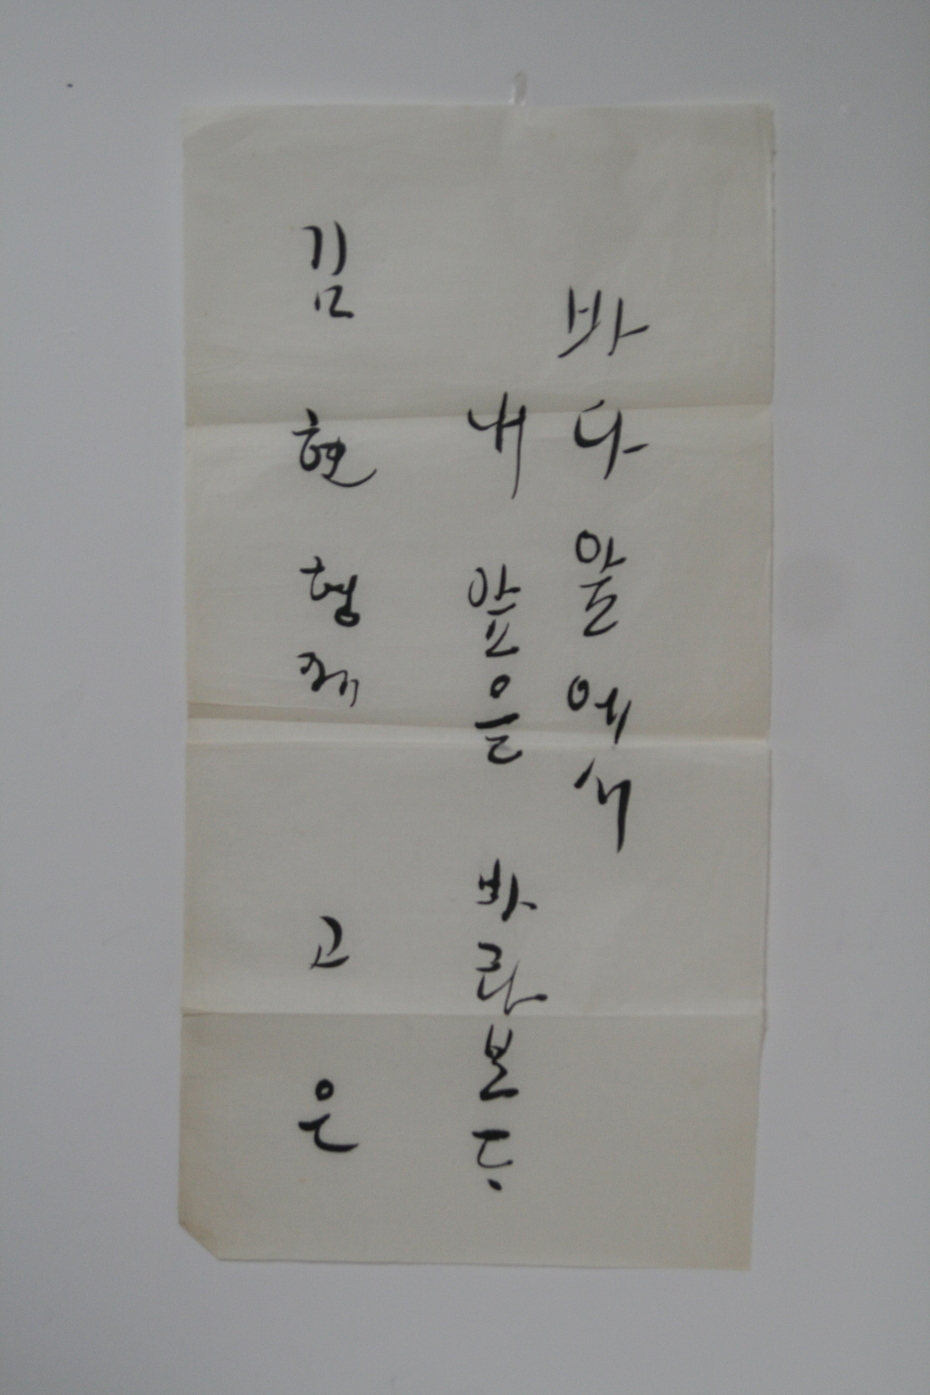 바다 앞에서
내 앞을 바라본다.
김 현 형께 고 은